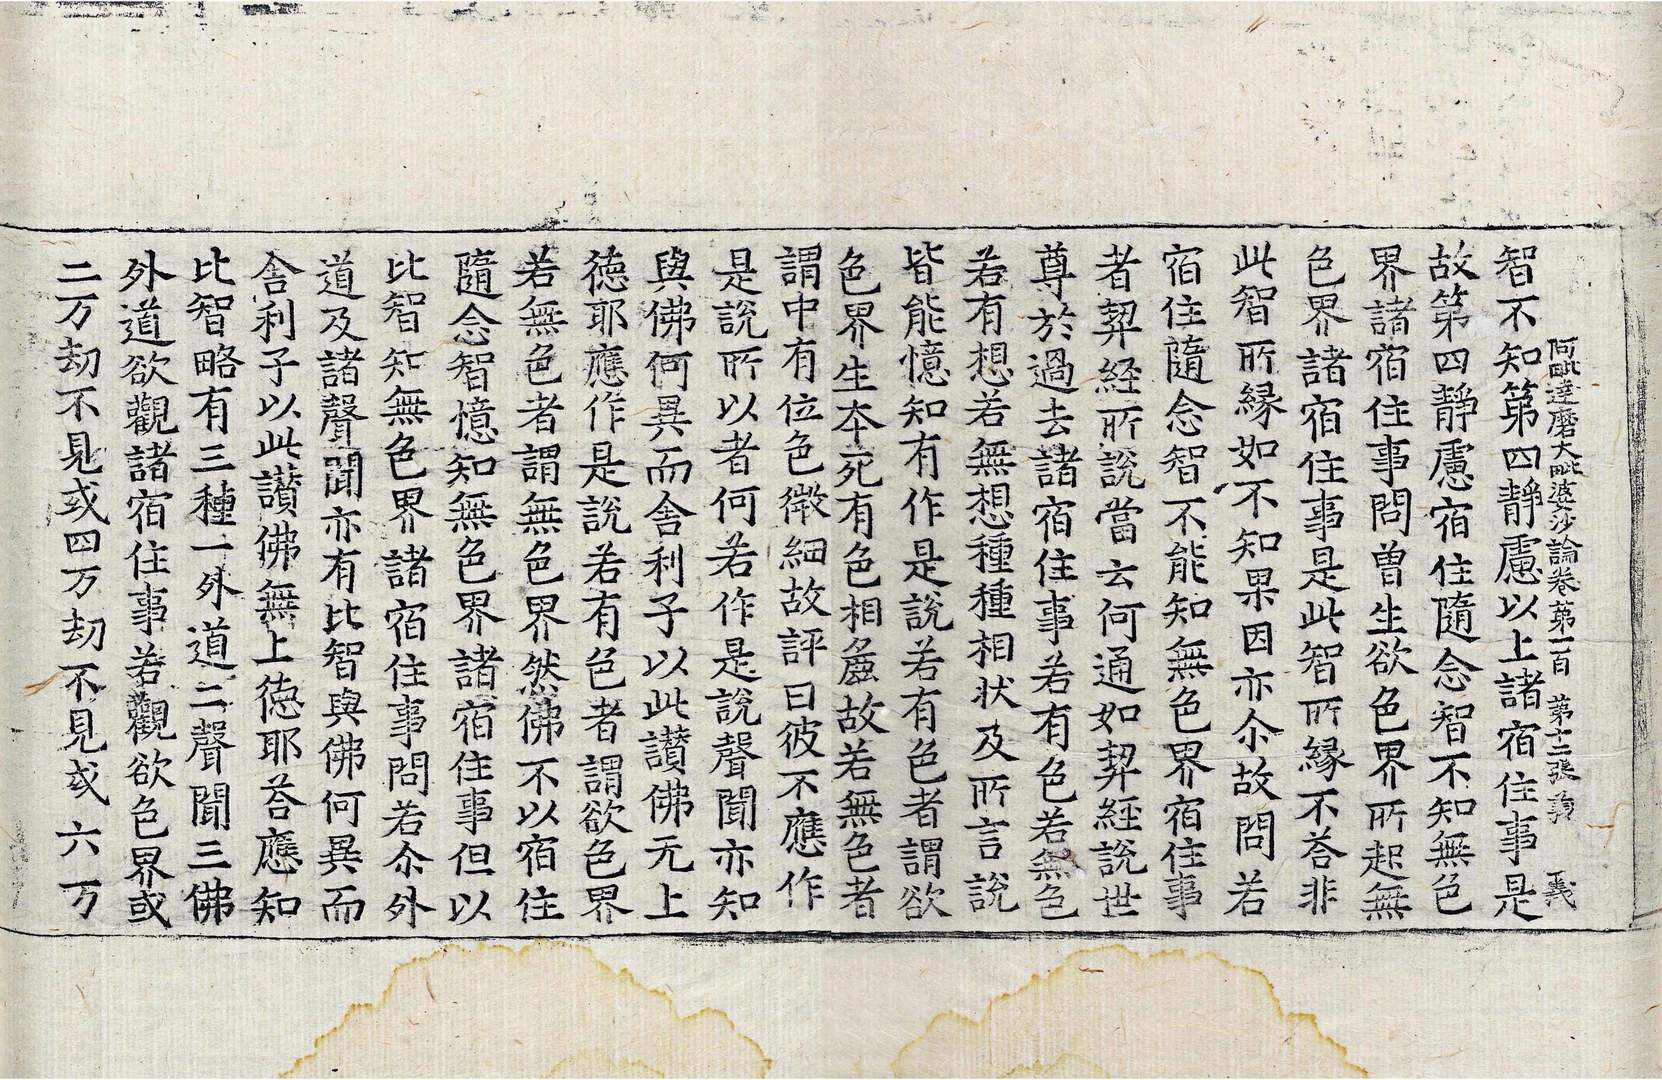 阿毗達磨大毗婆沙論卷第一百 第十二張 義
智不知第四靜慮以上諸宿住事是
故第四靜慮宿住隨念智不知無色
界諸宿住事問曽生欲色界所起無
色界諸宿住事是此智所縁不荅非
此智所縁如不知果因亦尒故問若
宿住隨念智不能知無色界宿住事
者契經所說當云何通如契經說世
尊於過去諸宿住事若有色若無色
若有想若無想種種相狀及所言說
皆能憶知有作是說若有色者謂欲
色界生本死有色相麁故若無色者
謂中有位色微細故評曰彼不應作
是說所以者何若作是說聲聞亦知
與佛何異而舍利子以此讃佛无上
德耶應作是說若有色者謂欲色界
若無色者謂無色界然佛不以宿住
隨念智憶知無色界諸宿住事但以
比智知無色界諸宿住事問若尒外
道及諸聲聞亦有比智與佛何異而
舍利子以此讃佛無上德耶荅應知
比智略有三種一外道二聲聞三佛
外道欲觀諸宿住事若觀欲色界或
二万劫不見或四万劫不見或六万